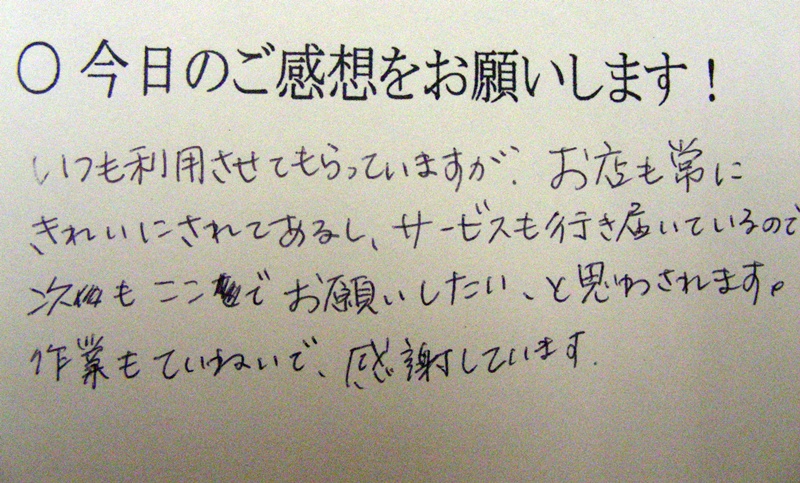 ○ 今日のご感想をお願いします！
いつも利用させてもらっていますが、お店も常に
きれいにされてあるし、サービスも行き届いているので
次も ここでお願いしたい、と思わされます。
作業もていねいで、感謝しています.